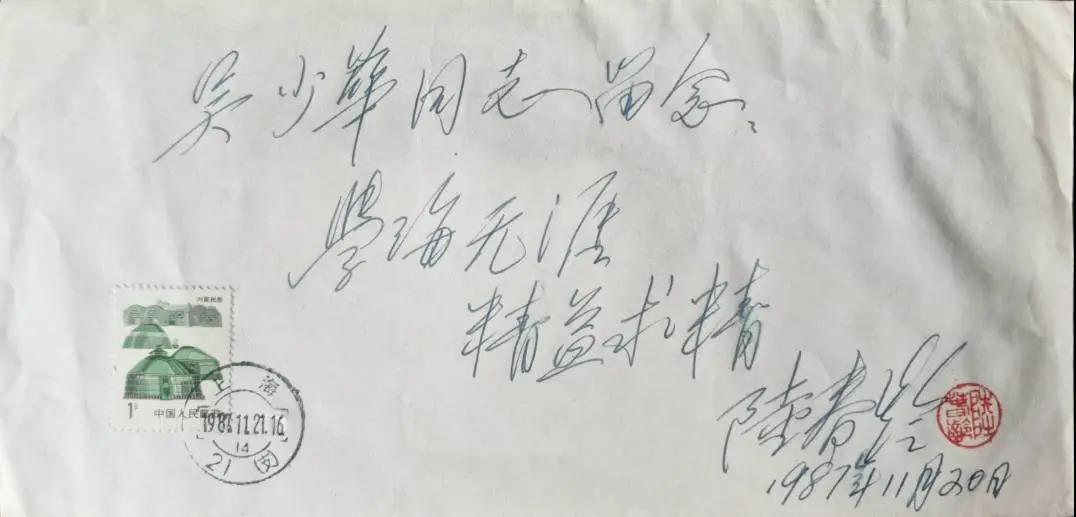 吴少華同志留念：
學海无涯
精益求精
陸春齡
1987年11月20日
内蒙民居
1分
中国人民邮政
上海
1987.11.21.16
14
21